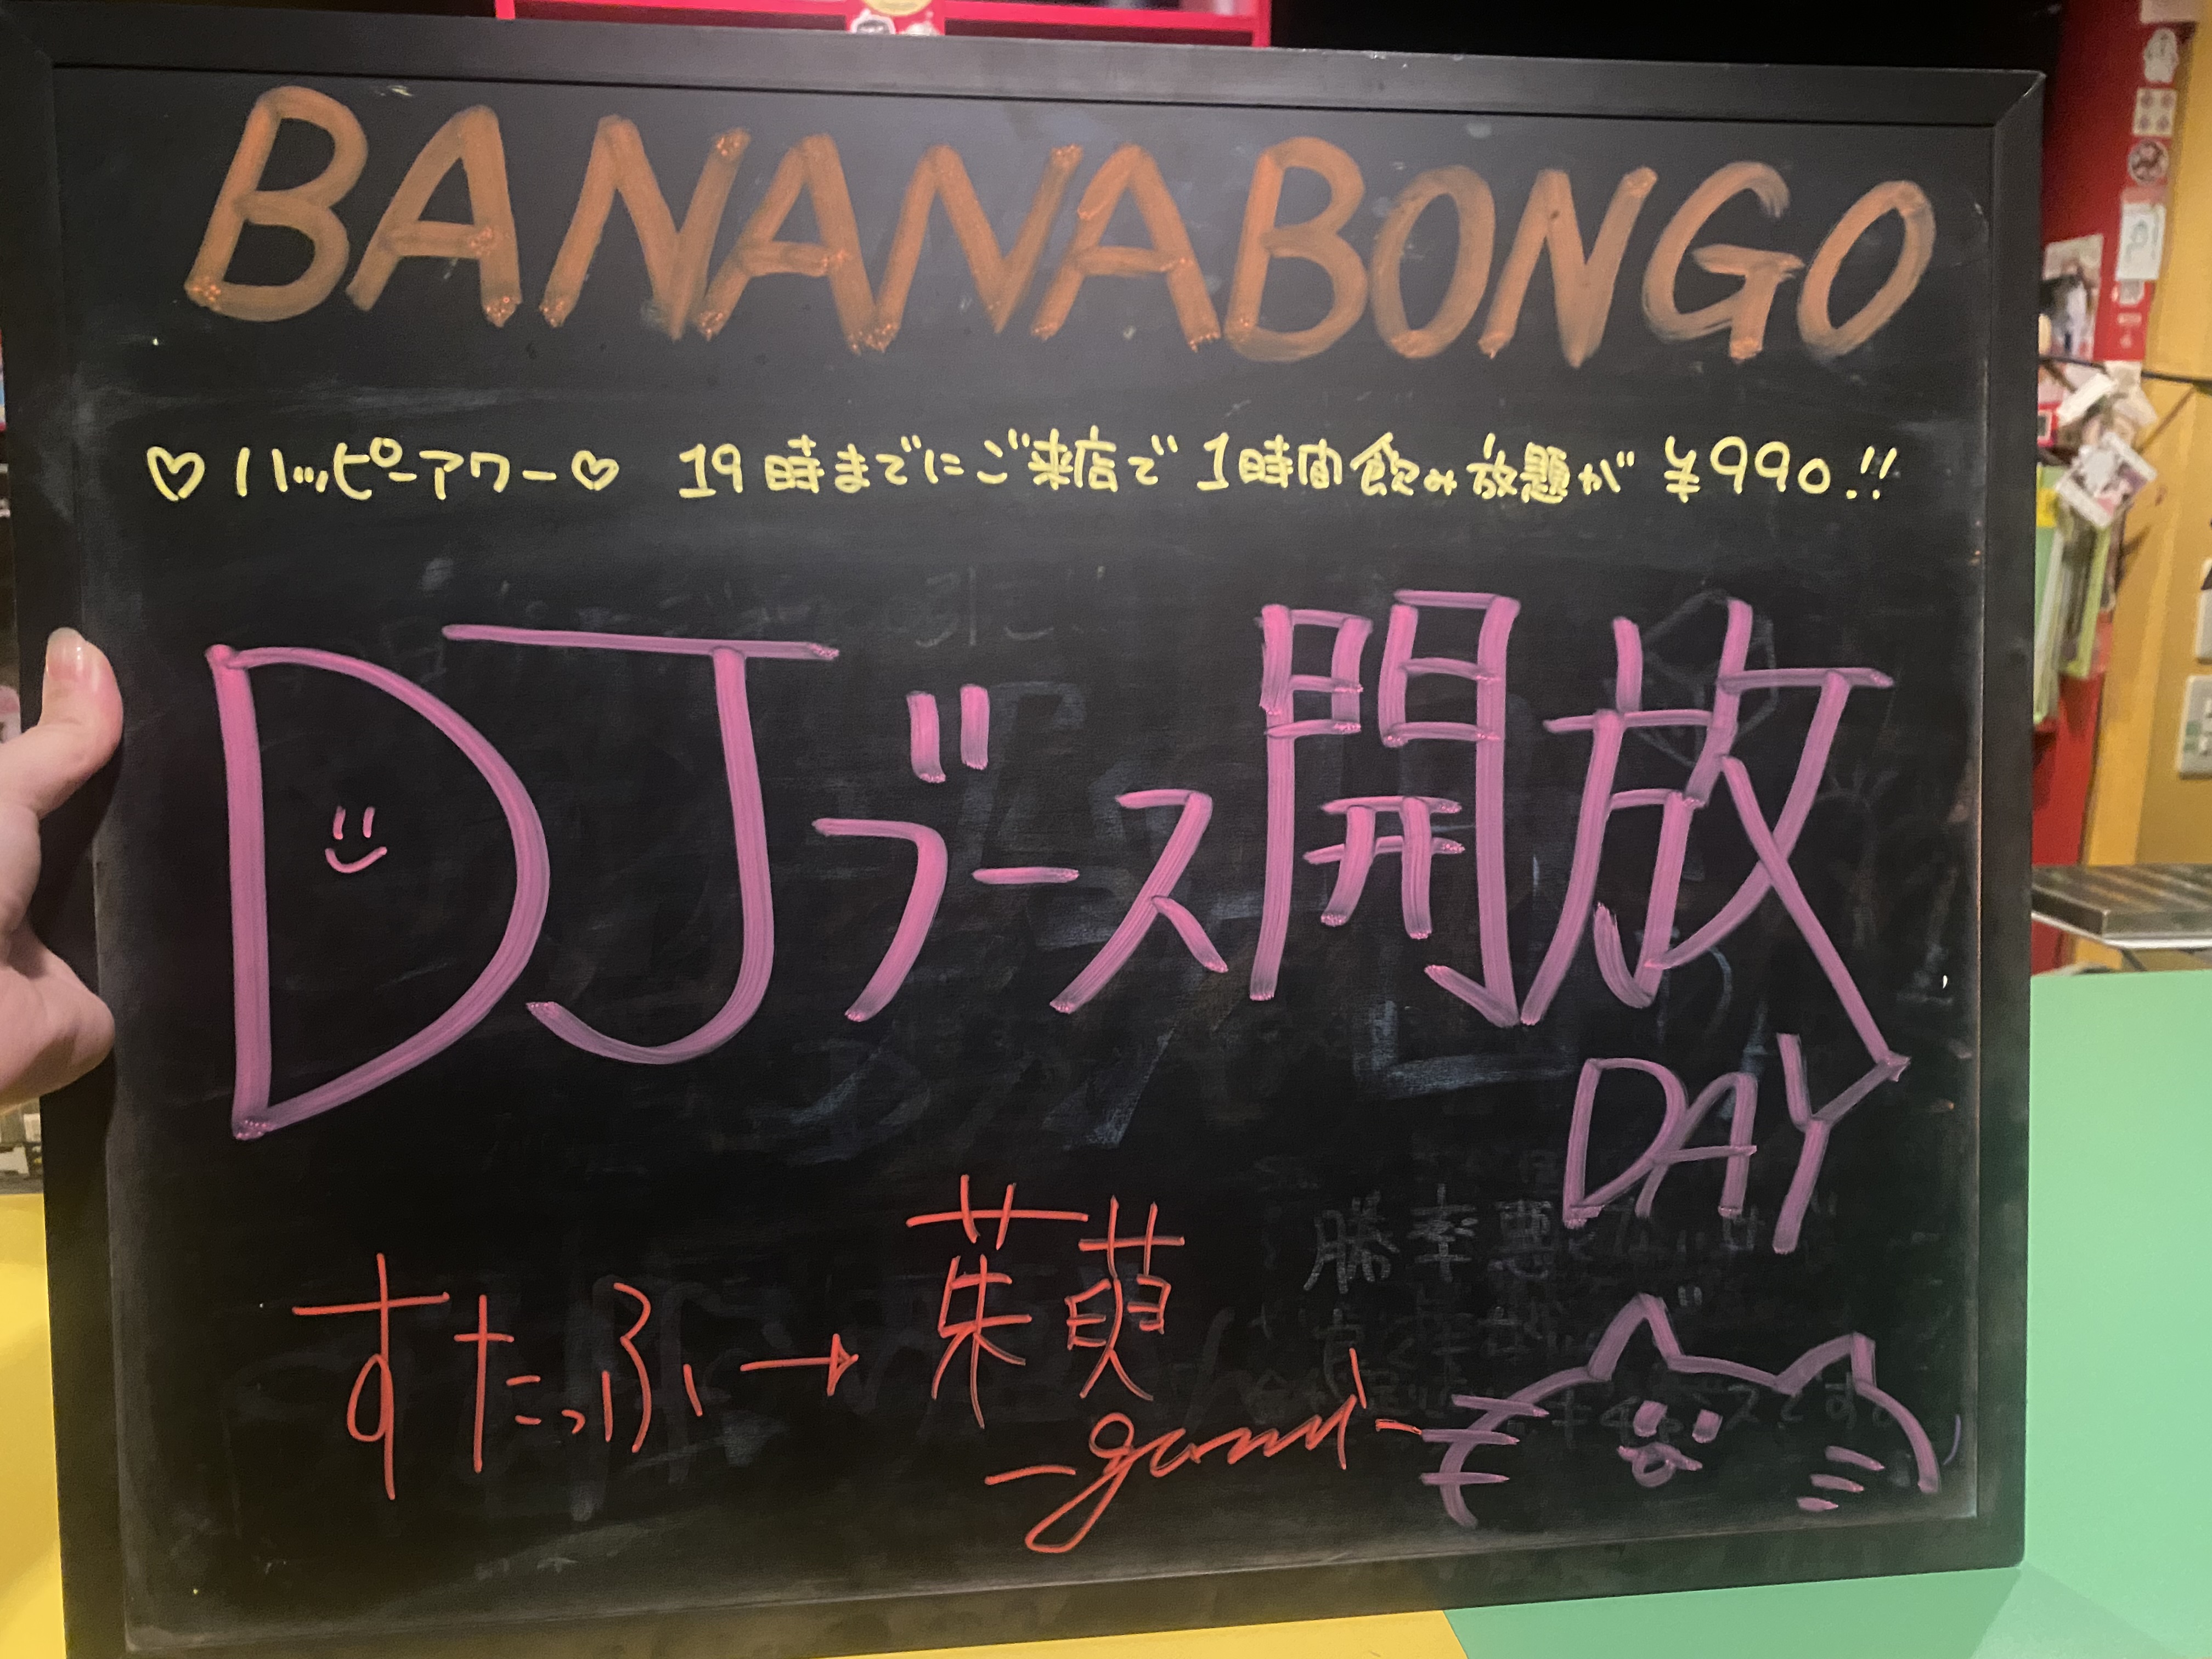 BANANABONGO
♡ハッピーアワー♡ 19時までにご来店で 1時間飲み放題が ¥990!!
DJブース開放
DAY
すたっふ→